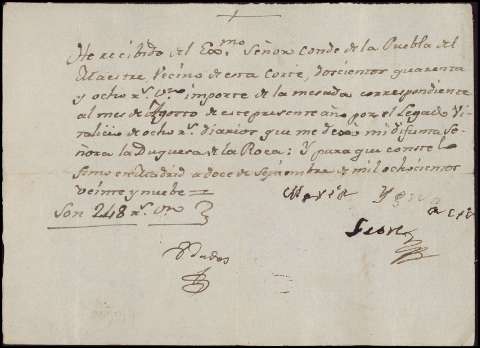 He recibido del Exmo Señor Conde de la Puebla del
Maestre, Vecino de esta Corte, doscientos quarenta
y ocho rs. vn. importe de la mesada correspondiente
al mes de Agosto de este presente año por el Legado Vi-
talicio de ocho rs. diarios que me dexo mi difunta Se-
ñora la Duquesa de la Roca: Y para que conste lo
firmo en Madrid a doce de Septiembre de mil ochocientos
veinte y nuebe =
Son 248 rs. vn.
María